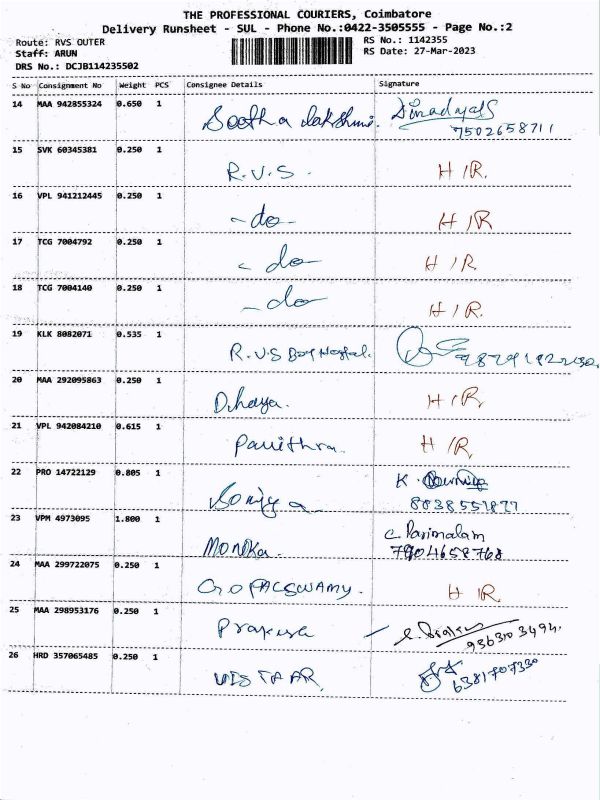 THE PROFESSIONAL COURIERS, Coimbatore
Delivery Runsheet - SUL - Phone No.:0422-3505555 - Page No.:2
Route: RVS OUTER RS No.: 1142355
Staff: ARUN RS Date: 27-Mar-2023
DRS No.: DCJB114235502
S No Consignment No Weight PCS Consignee Details Signature
14 MAA 942855324 0.650 1
7502658711
15 SVK 60345381 0.250 1 R.V.S. H/R.
16 VPL 941212445 0.250 1 -do- H/R
17 TCG 7004792 0.250 1 -do H/R
18 TCG 7004140 0.250 1 -do H/R.
19 KLK 8082071 0.535 1 R.V.S
20 MAA 292095863 0.250 1 H/R
21 VPL 942084210 0.615 1 Pavithra. H/R,
22 PRO 14722129 0.805 1 Soniya K.
23 VPM 4973095 1.800 1 Monika. C. Parimalam
7904658768
24 MAA 299722075 0.250 1 GOPALSWAMY. H R.
25 MAA 298953176 0.250 1
9363103494.
26 HRD 357065485 0.250 1 VISTAAR
6381707330